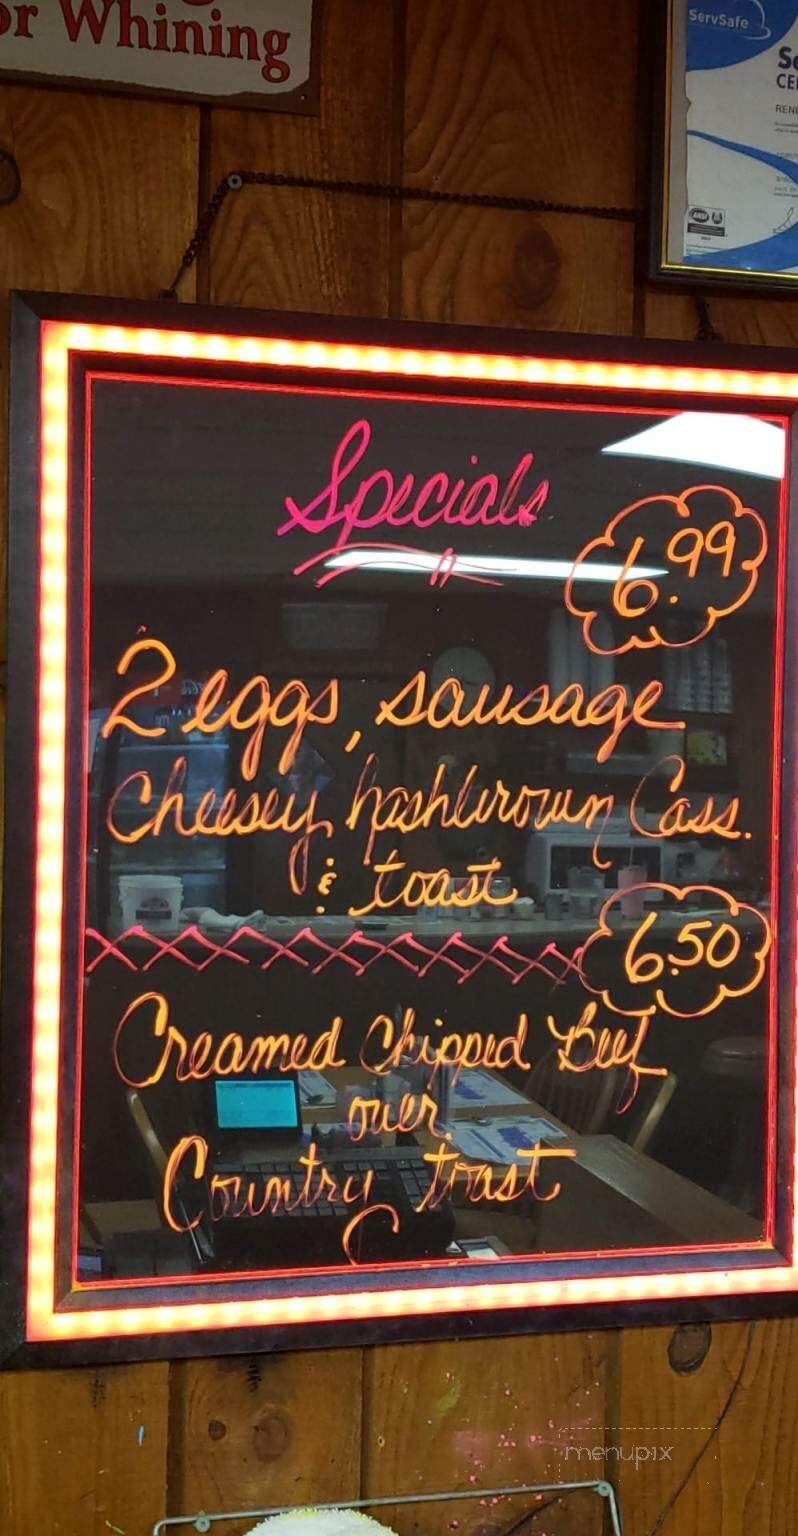 or Whining
ServSafe
Specials
6.99
2 eggs, sausage
Cheesey hashbrown Cass.
& toast
6.50
Creamed Chipped Beef
over
Country toast
menupix